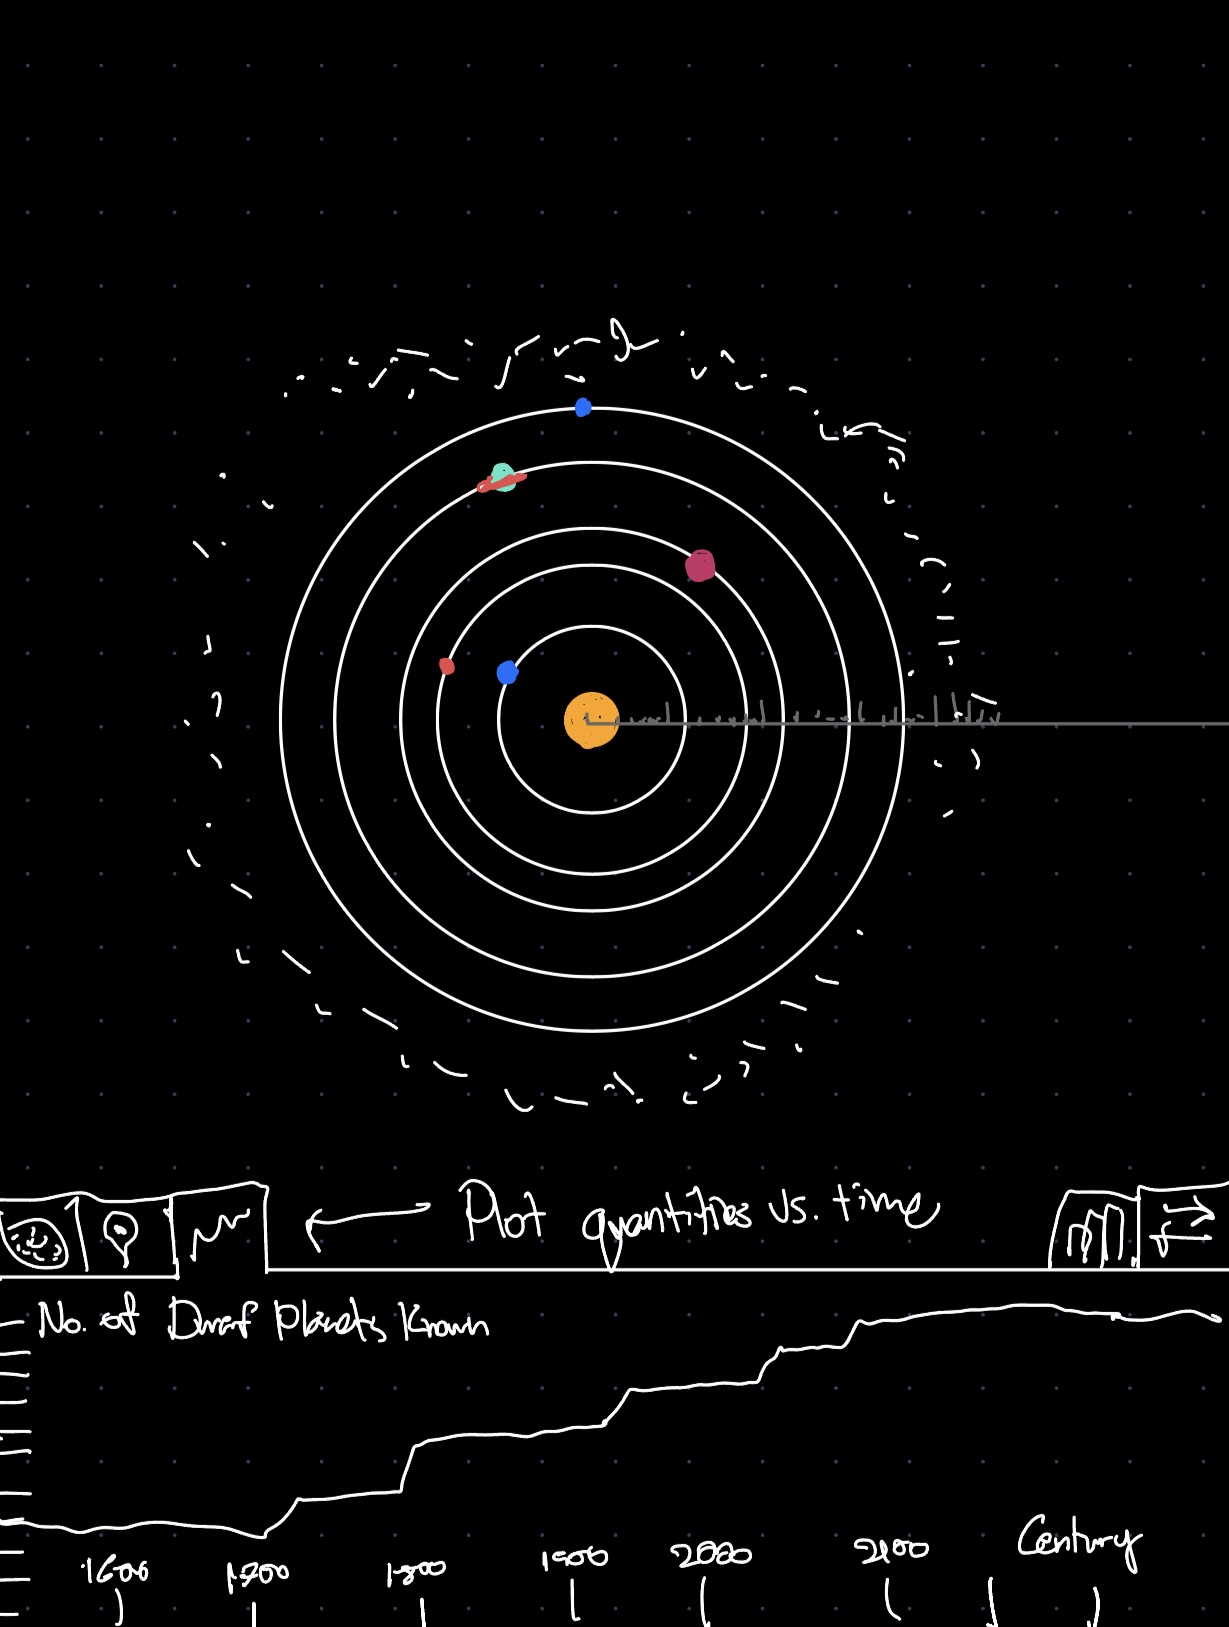 Plot quantities vs. time
No. of Dwarf Planets Known
1600 1700 1800 1900 2000 2100 Century